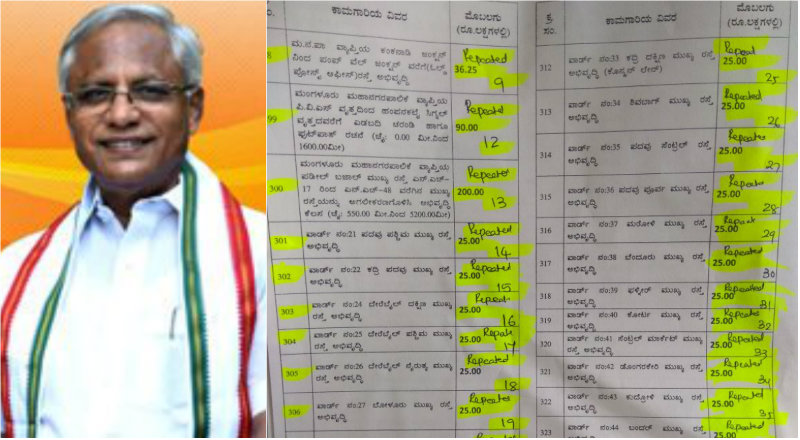 ಕಾಮಗಾರಿಯ ವಿವರ
ಮೊಬಲಗು
(ರೂ.ಲಕ್ಷಗಳಲ್ಲಿ)
ಮ.ನ.ಪಾ ವ್ಯಾಪ್ತಿಯ ಕಂಕನಾಡಿ ಜಂಕ್ಷನ್
ನಿಂದ ಪಂಪ್ ವೆಲ್ ಜಂಕ್ಷನ್ ವರೆಗೆ(ಓಲ್ಡ್
ಪೋಸ್ಟ್ ಆಫೀಸ್)ರಸ್ತೆ ಅಭಿವೃದ್ಧಿ
Repeated
36.25
9
299
ಮಂಗಳೂರು ಮಹಾನಗರಪಾಲಿಕೆ ವ್ಯಾಪ್ತಿಯ
ಪಿ.ವಿ.ಎಸ್ ವೃತ್ತದಿಂದ ಹಂಪನಕಟ್ಟೆ ಸಿಗ್ನಲ್
ವೃತ್ತದವರೆಗೆ ಎಡಬದಿ ಚರಂಡಿ ಹಾಗೂ
ಫುಟ್‌ಪಾತ್ ರಚನೆ (ಚೈ: 0.00 ಮೀ.ನಿಂದ
1600.00ಮೀ)
Repeated
90.00
12
300
ಮಂಗಳೂರು ಮಹಾನಗರಪಾಲಿಕೆ ವ್ಯಾಪ್ತಿಯ
ಪಡೀಲ್ ಬಜಾಲ್ ಮುಖ್ಯ ರಸ್ತೆ ಎನ್.ಎಚ್-
17 ರಿಂದ ಎನ್.ಎಚ್-48 ವರೆಗಿನ ಮುಖ್ಯ
ರಸ್ತೆಯನ್ನು ಅಗಲೀಕರಣಗೊಳಿಸಿ ಅಭಿವೃದ್ಧಿ
ಕೆಲಸ (ಚೈ: 550.00 ಮೀ.ನಿಂದ 5200.00ಮೀ)
Repeated
200.00
13
301
ವಾರ್ಡ್ ನಂ:21 ಪದವು ಪಶ್ಚಿಮ ಮುಖ್ಯ ರಸ್ತೆ
ಅಭಿವೃದ್ಧಿ
Repeated
25.00
14
302
ವಾರ್ಡ್ ನಂ:22 ಕದ್ರಿ ಪದವು ಮುಖ್ಯ ರಸ್ತೆ
ಅಭಿವೃದ್ಧಿ
Repeated
25.00
15
303
ವಾರ್ಡ್ ನಂ:24 ದೇರೆಬೈಲ್ ದಕ್ಷಿಣ ಮುಖ್ಯ
ರಸ್ತೆ ಅಭಿವೃದ್ಧಿ
Repeat
25.00
16
304
ವಾರ್ಡ್ ನಂ:25 ದೇರೆಬೈಲ್ ಪಶ್ಚಿಮ ಮುಖ್ಯ
ರಸ್ತೆ ಅಭಿವೃದ್ಧಿ
Repeat
25.00
17
305
ವಾರ್ಡ್ ನಂ:26 ದೇರೆಬೈಲ್ ನೈರುತ್ಯ ಮುಖ್ಯ
ರಸ್ತೆ ಅಭಿವೃದ್ಧಿ
Repeated
25.00
18
306
ವಾರ್ಡ್ ನಂ:27 ಬೋಳೂರು ಮುಖ್ಯ ರಸ್ತೆ
ಅಭಿವೃದ್ಧಿ
Repeated
25.00
19
ಕ್ರ.
ಸಂ.
ಕಾಮಗಾರಿಯ ವಿವರ
ಮೊಬಲಗು
(ರೂ.ಲಕ್ಷಗಳಲ್ಲಿ)
312
ವಾರ್ಡ್ ನಂ:33 ಕದ್ರಿ ದಕ್ಷಿಣ ಮುಖ್ಯ ರಸ್ತೆ
ಅಭಿವೃದ್ಧಿ (ಕೊನ್ಸನ್ ಲೇನ್)
Repeat
25.00
25
313
ವಾರ್ಡ್ ನಂ:34 ಶಿವಬಾಗ್ ಮುಖ್ಯ ರಸ್ತೆ
ಅಭಿವೃದ್ಧಿ
Repeated
25.00
26
314
ವಾರ್ಡ್ ನಂ:35 ಪದವು ಸೆಂಟ್ರಲ್ ರಸ್ತೆ
ಅಭಿವೃದ್ಧಿ
Repeated
25.00
27
315
ವಾರ್ಡ್ ನಂ:36 ಪದವು ಪೂರ್ವ ಮುಖ್ಯ ರಸ್ತೆ
ಅಭಿವೃದ್ಧಿ
Repeated
25.00
28
316
ವಾರ್ಡ್ ನಂ:37 ಮರೋಳಿ ಮುಖ್ಯ ರಸ್ತೆ
ಅಭಿವೃದ್ಧಿ
Repeat
25.00
29
317
ವಾರ್ಡ್ ನಂ:38 ಬೆಂದೂರು ಮುಖ್ಯ ರಸ್ತೆ
ಅಭಿವೃದ್ಧಿ
Repeated
25.00
30
318
ವಾರ್ಡ್ ನಂ:39 ಫಳ್ನೀರ್ ಮುಖ್ಯ ರಸ್ತೆ
ಅಭಿವೃದ್ಧಿ
Repeated
25.00
31
319
ವಾರ್ಡ್ ನಂ:40 ಕೋರ್ಟ್ ಮುಖ್ಯ ರಸ್ತೆ
ಅಭಿವೃದ್ಧಿ
Repeated
25.00
32
320
ವಾರ್ಡ್ ನಂ:41 ಸೆಂಟ್ರಲ್ ಮಾರ್ಕೆಟ್ ಮುಖ್ಯ
ರಸ್ತೆ ಅಭಿವೃದ್ಧಿ
Repeated
25.00
33
321
ವಾರ್ಡ್ ನಂ:42 ಡೊಂಗರಕೇರಿ ಮುಖ್ಯ ರಸ್ತೆ
ಅಭಿವೃದ್ಧಿ
Repeated
25.00
34
322
ವಾರ್ಡ್ ನಂ:43 ಕುದ್ರೋಳಿ ಮುಖ್ಯ ರಸ್ತೆ
ಅಭಿವೃದ್ಧಿ
Repeated
25.00
35
323
ವಾರ್ಡ್ ನಂ:44 ಬಂದರ್ ಮುಖ್ಯ ರಸ್ತೆ
Repeated
25.00